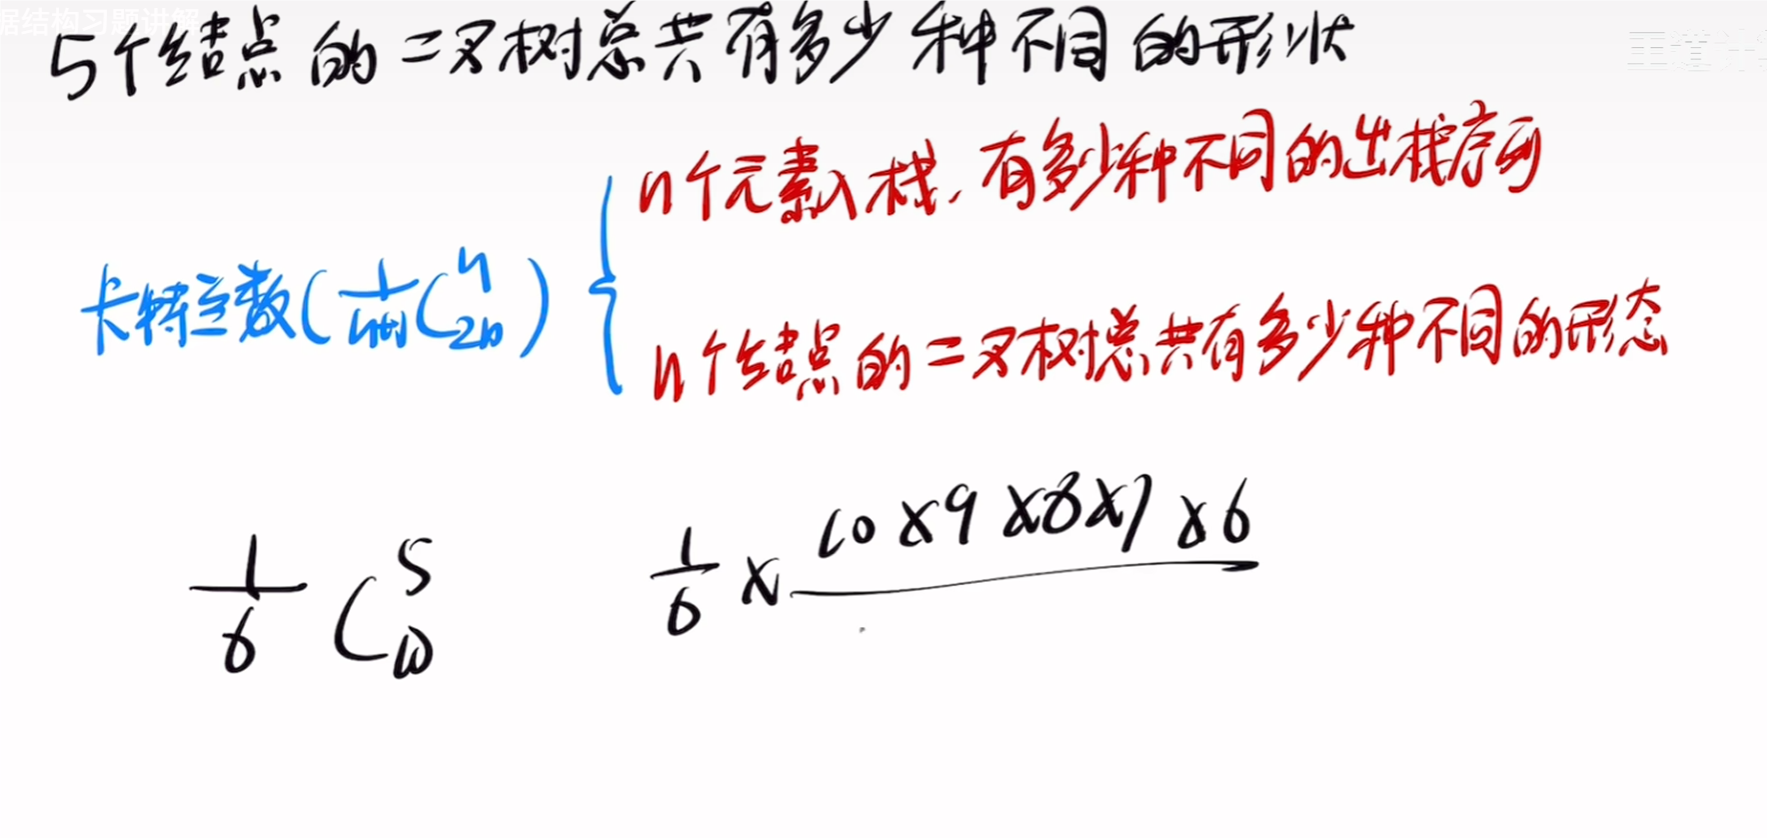 据结构习题讲解
王道计
5个结点的二叉树总共有多少种不同的形状
n个元素入栈，有多少种不同的出栈序列
卡特兰数(1/(n+1) C_{2n}^{n})
n个结点的二叉树总共有多少种不同的形态
1/6 C_{10}^{5}
1/6 × 10×9×8×7×6